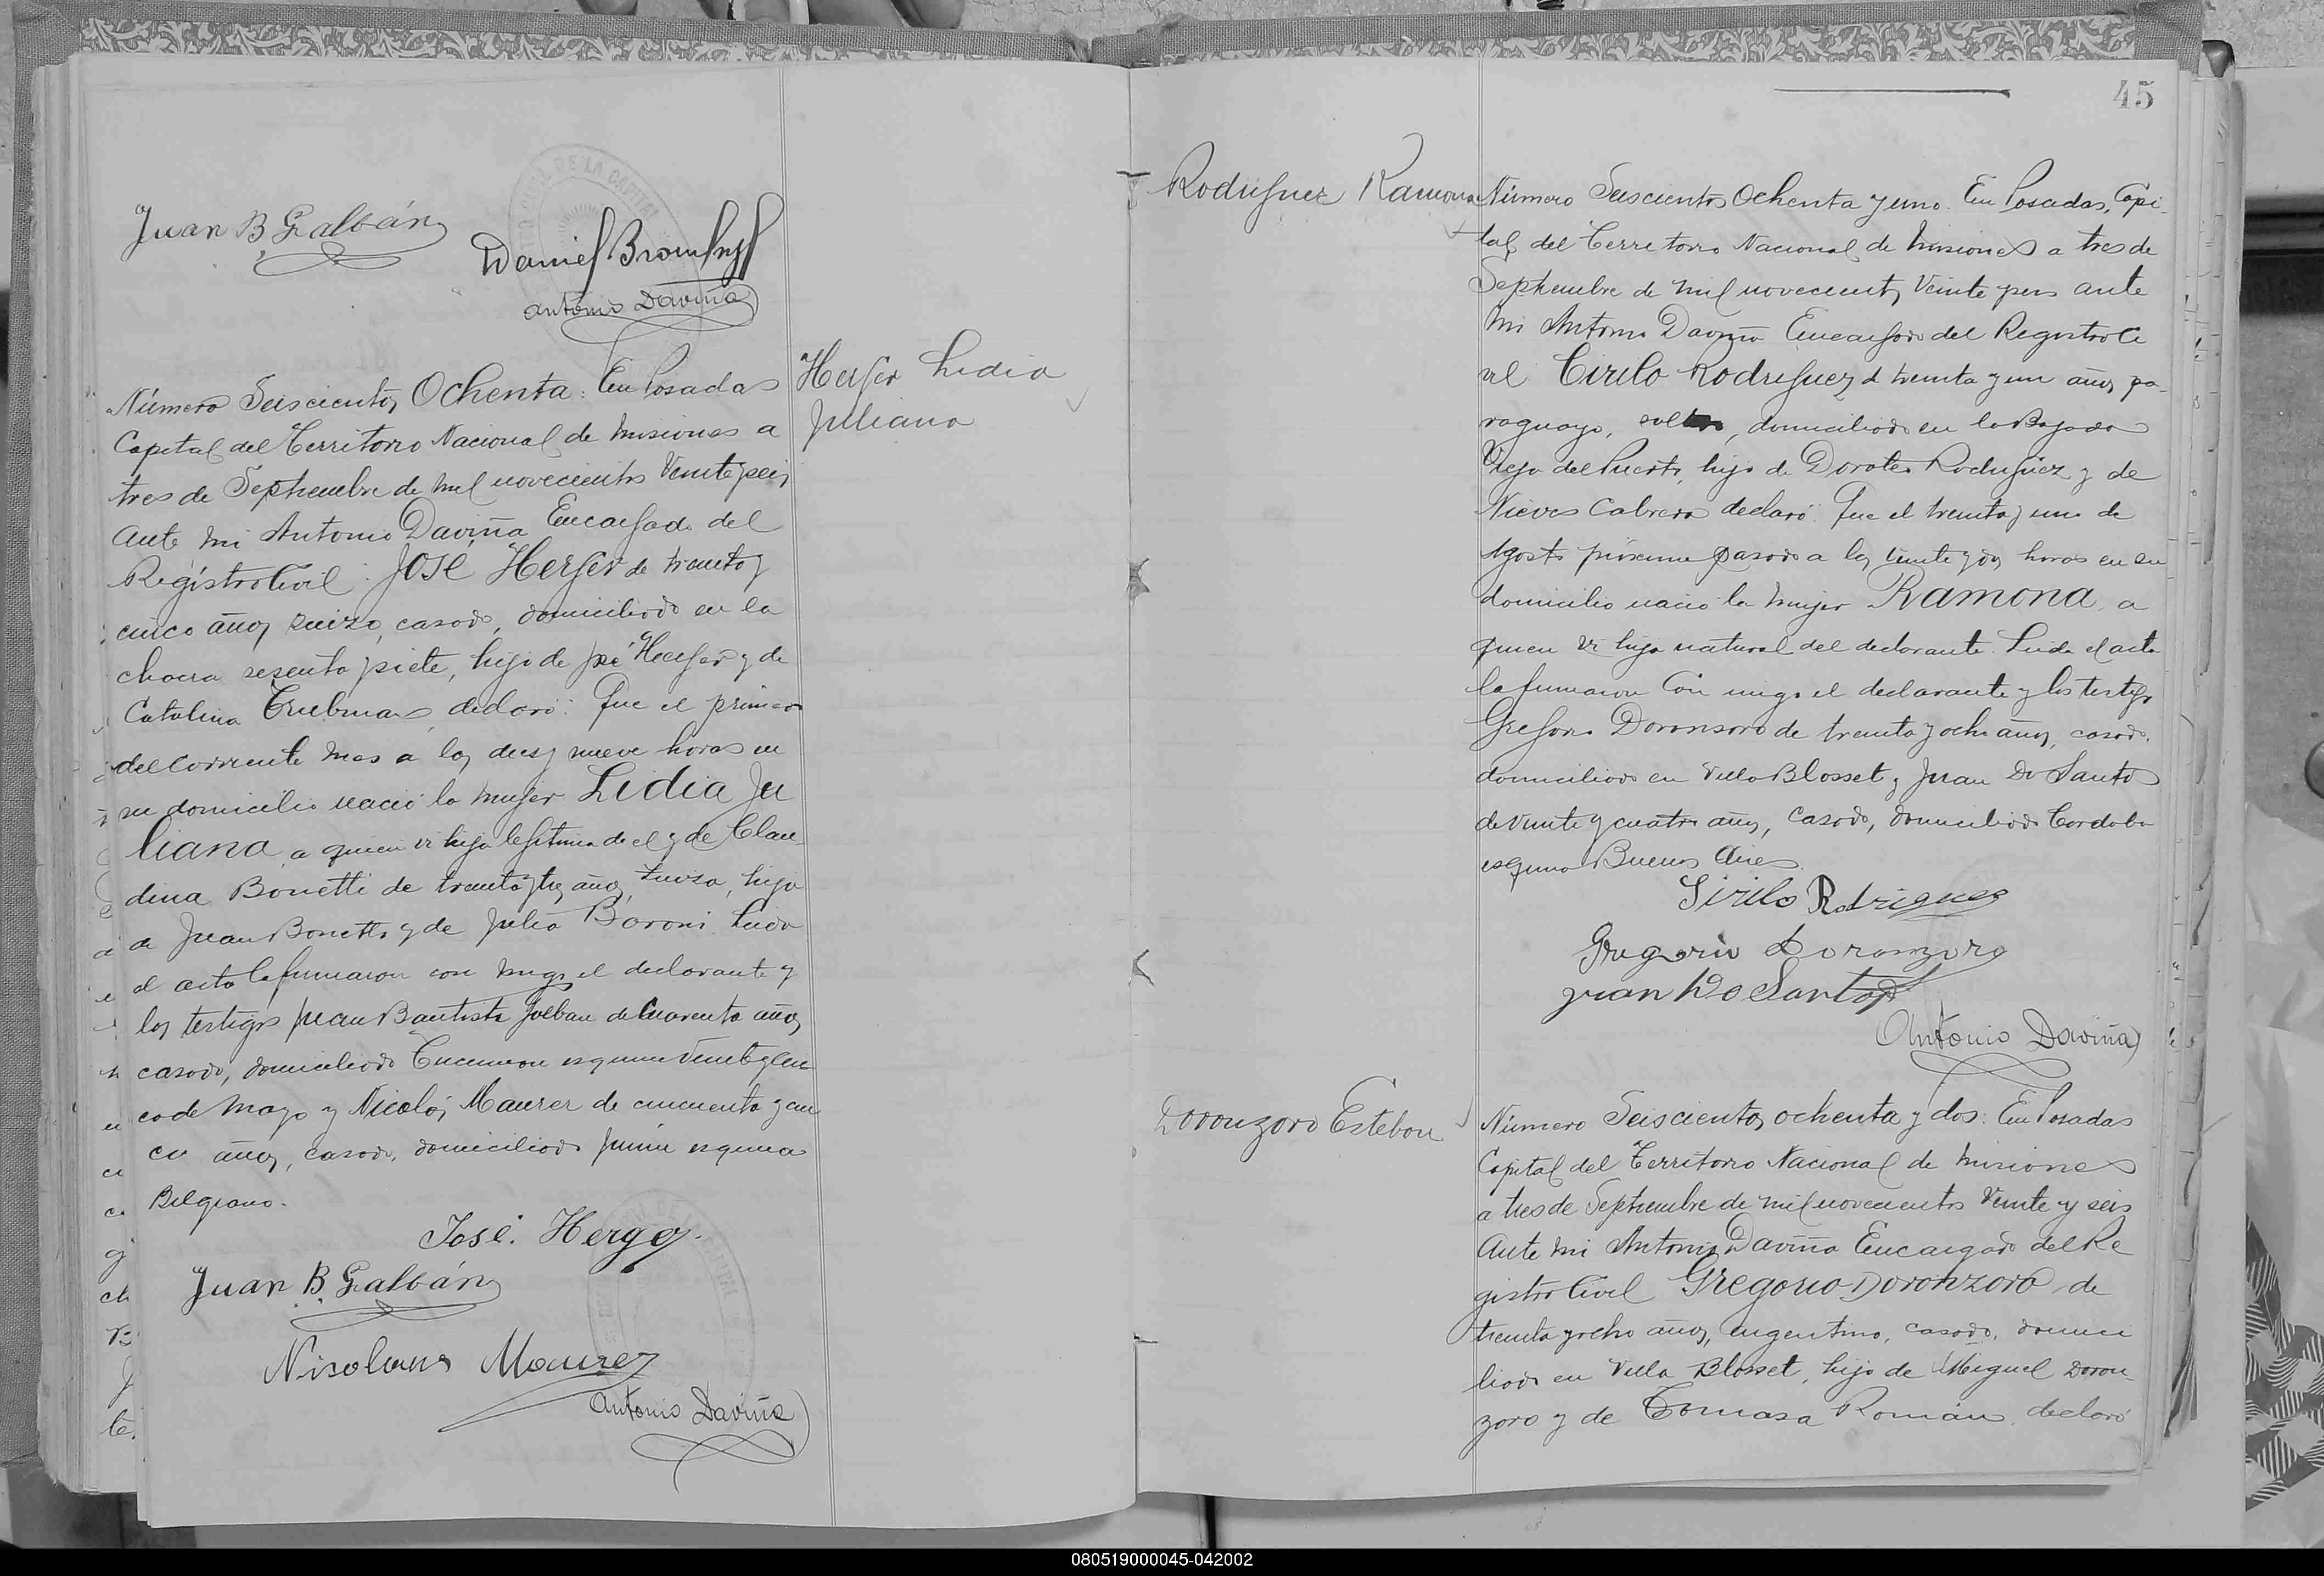 Juan B Galbán
Daniel
Antonio Daviña
Número Seiscientos Ochenta: En Posadas
Capital del Territorio Nacional de Misiones a
tres de Septiembre de mil novecientos Veinte y seis
Ante mi Antonio Daviña Encargado del
Registro Civil: JOSE Herger de treinta y
cinco años suizo, casado, domiciliado en la
chacra sesenta y siete, hijo de José Herger y de
Catalina declaró: Que el primero
del corriente mes a las diez y nueve horas en
su domicilio nació la mujer Lidia Ju
liana a quien vi hija legítima de el y de Clau
dina Bonetti de treinta y tres años, suiza, hija
de Juan Bonetti y de Julia Boroni. Leida
el acta la firmaron con migo el declarante y
los testigos Juan Bautista Galban de Cuarenta años
casado, domiciliado Tucuman esquina Veinte y cin
co de Mayo y Nicolás Maurer de cincuenta y cin
co años, casado, domiciliado Junin esquina
Belgrano.
José. Herger.
Juan B. Galbán
Nicolaus Maurer
Antonio Daviña
Herger Lidia
Juliana
45
Rodriguez Ramona
Número Seiscientos Ochenta y uno. En Posadas, Capi-
tal del Territorio Nacional de Misiones a tres de
Septiembre de mil novecientos Veinte y seis ante
mi Antonio Daviña Encargado del Registro Ci
vil Cirilo Rodriguez de treinta y un años, pa-
raguayo, soltero, domiciliado en la Bajada
Vieja del Puerto, hijo de Doroteo Rodriguez y de
Nieves Cabrera declaró: Que el treinta y uno de
Agosto próximo pasado a las veinte y dos horas en su
domicilio nació la mujer Ramona, a
quien vi hija natural del declarante. Leida el acta
la firmaron con migo el declarante y los testigos
Gregorio Doronsoro de treinta y ocho años, casado,
domiciliado en Villa Blosset y Juan Do Santos
de veinte y cuatro años, casado, domiciliado Cordoba
esquina Buenos Aires.
Sirilo Rodriguez
Gregorio Doronzoro
Juan Do Santos
Antonio Daviña
Doronzoro Esteban
Número Seiscientos ochenta y dos: En Posadas
Capital del Territorio Nacional de Misiones
a tres de Septiembre de mil novecientos Veinte y seis
Ante mi Antonio Daviña Encargado del Re
gistro Civil Gregorio Doronzoro de
treinta y ocho años, argentino, casado, domici
liado en Villa Blosset, hijo de Miguel Doron-
zoro y de Tomasa Román, declaró
080519000045-042002